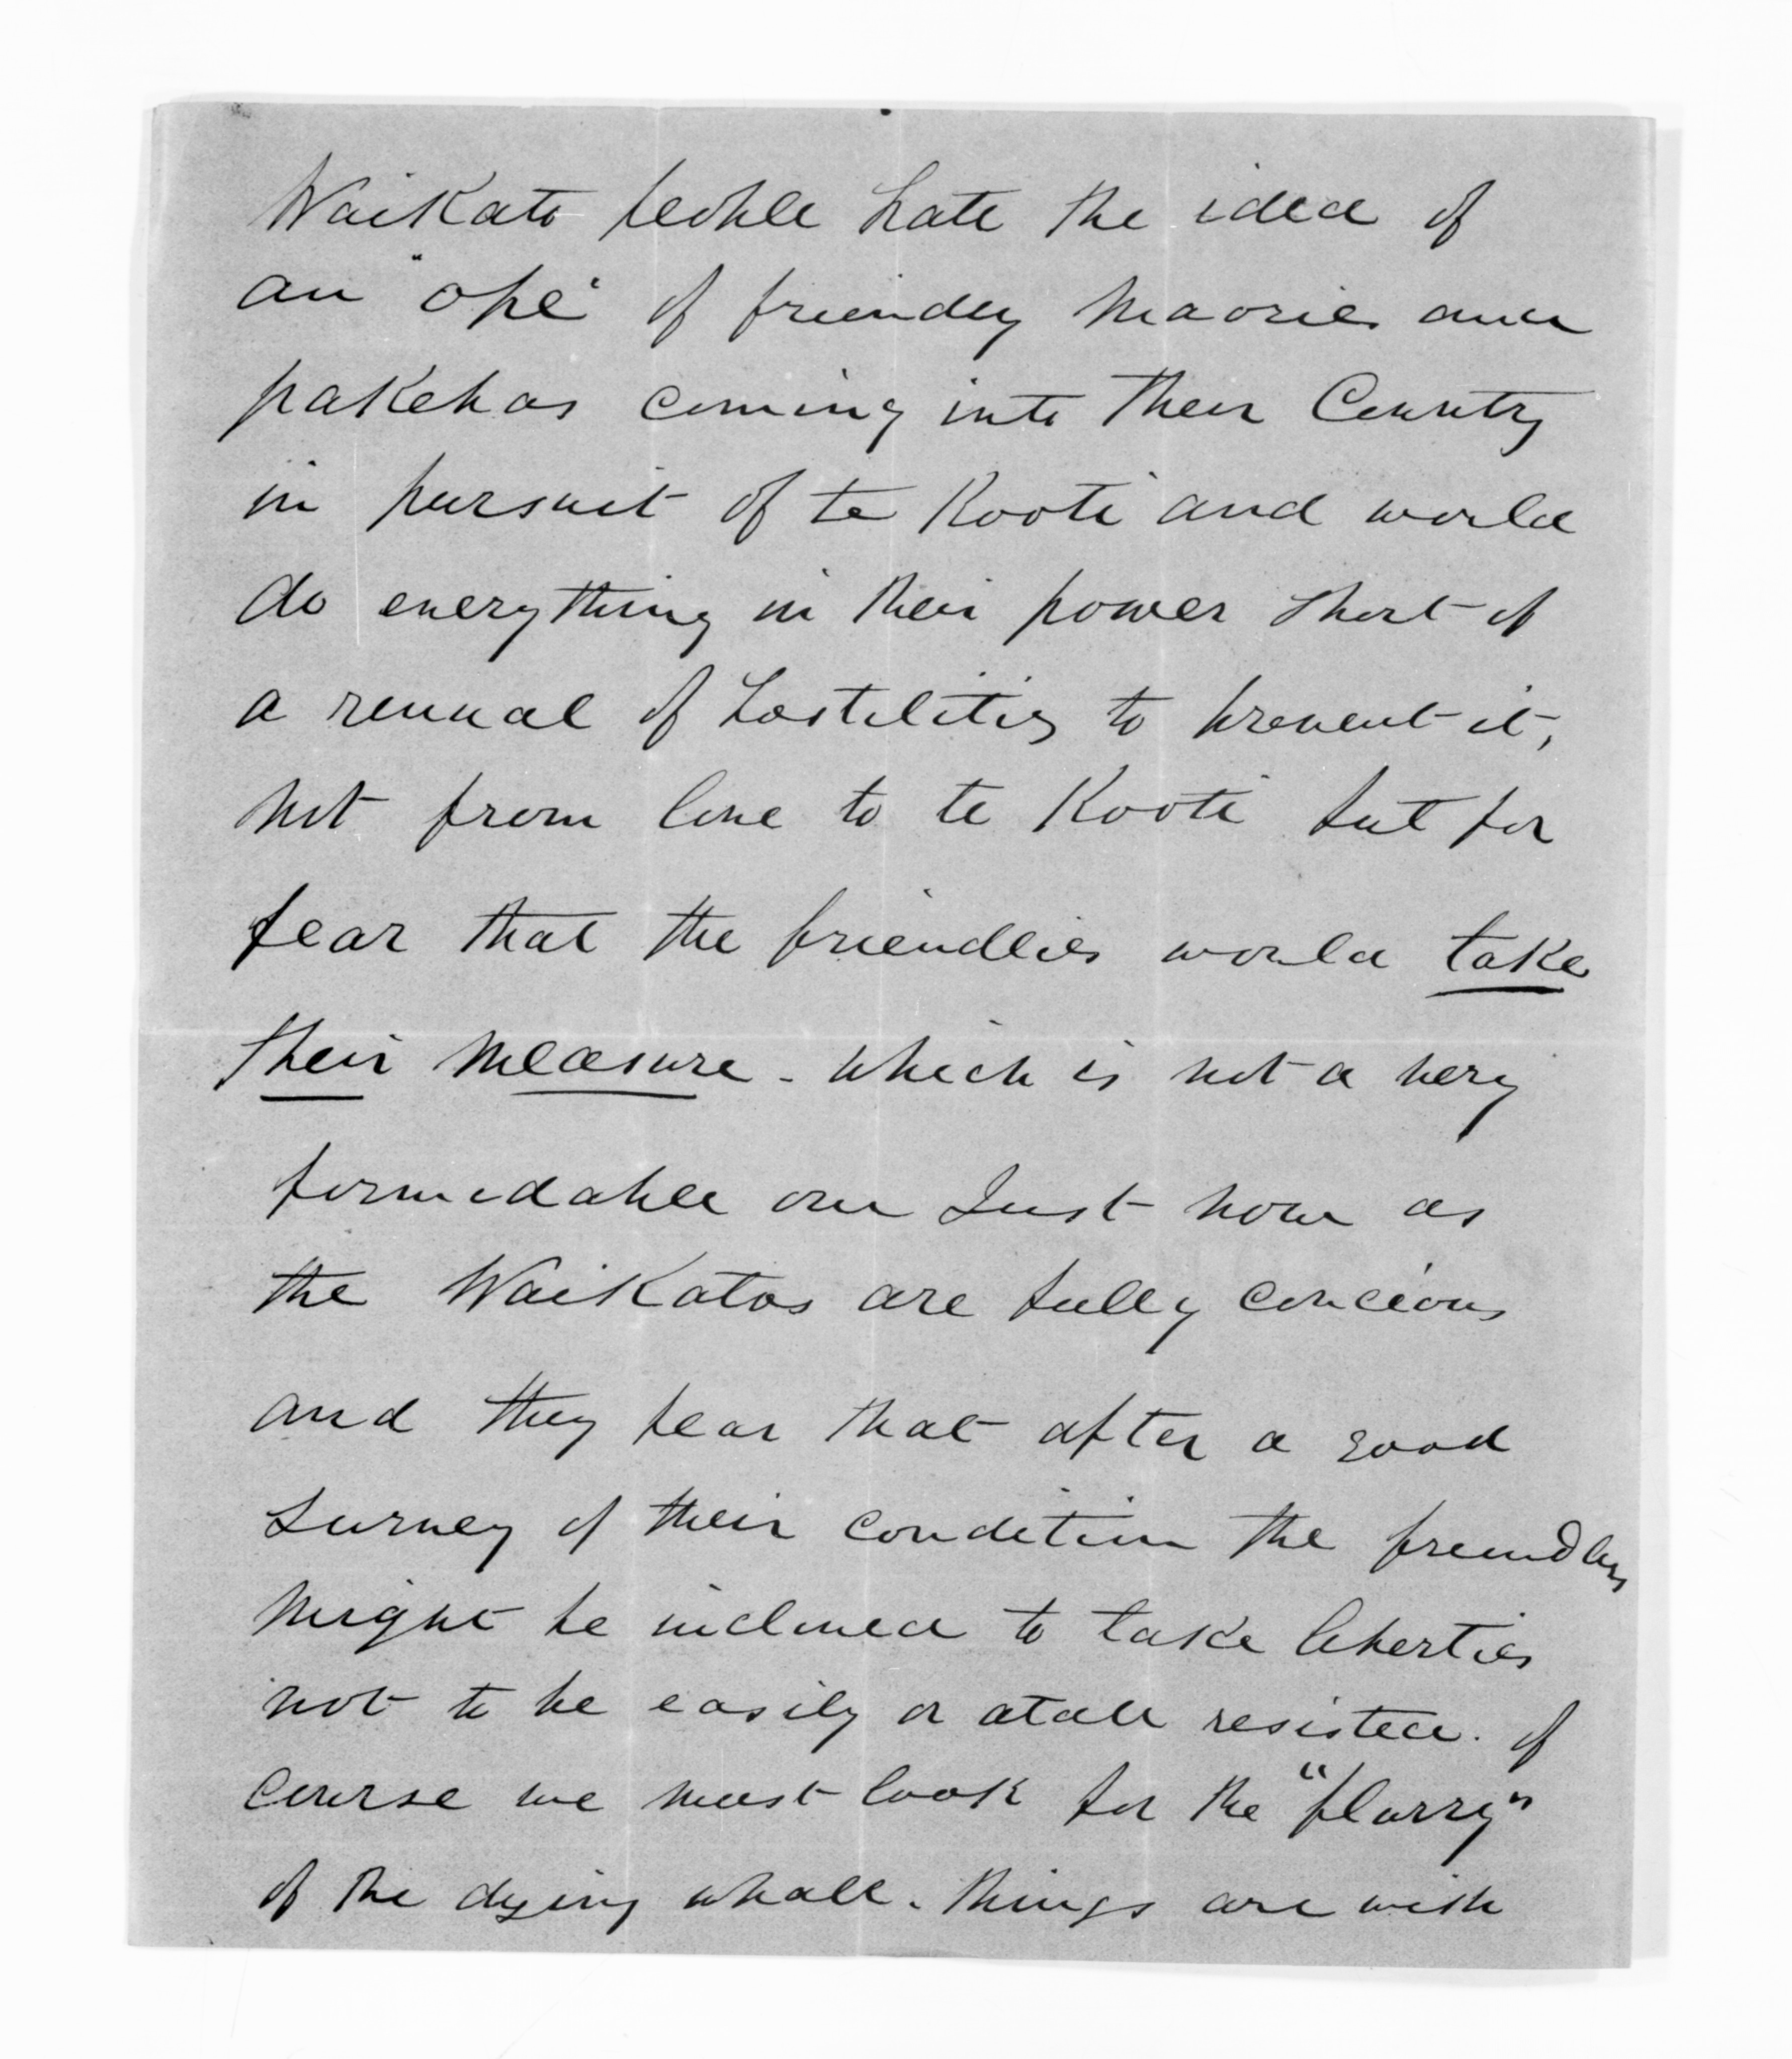 Waikato people hate the idea of
an "ope" of friendly Maories and
pakehas coming into their Country
in pursuit of te Kooti and would
do everything in their power short of
a renual of hostilities to prevent it,
not from love to te Kooti but for
fear that the friendlies would take
their measure - which is not a very
formidable one Just now as
the Waikatos are fully concious
and they fear that after a good
survey of their condition the friendlies
might be inclined to take liberties
not to be easily or atall resisted. of
course we must look for the "flurry"
of the dying whale. things are with